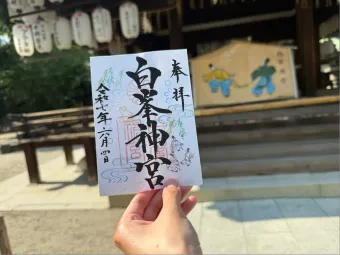 奉拝
白峯神宮
令和七年六月四日